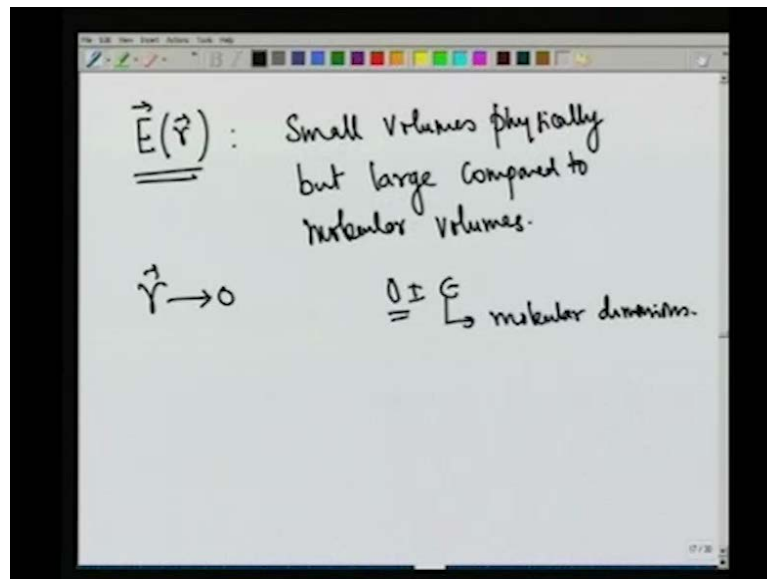 File Edit View Insert Actions Tools Help
E⃗(r⃗) : Small volumes physically
but large compared to
molecular volumes.
r⃗ → 0 0 ± ϵ
↳ molecular dimensions.
17/30